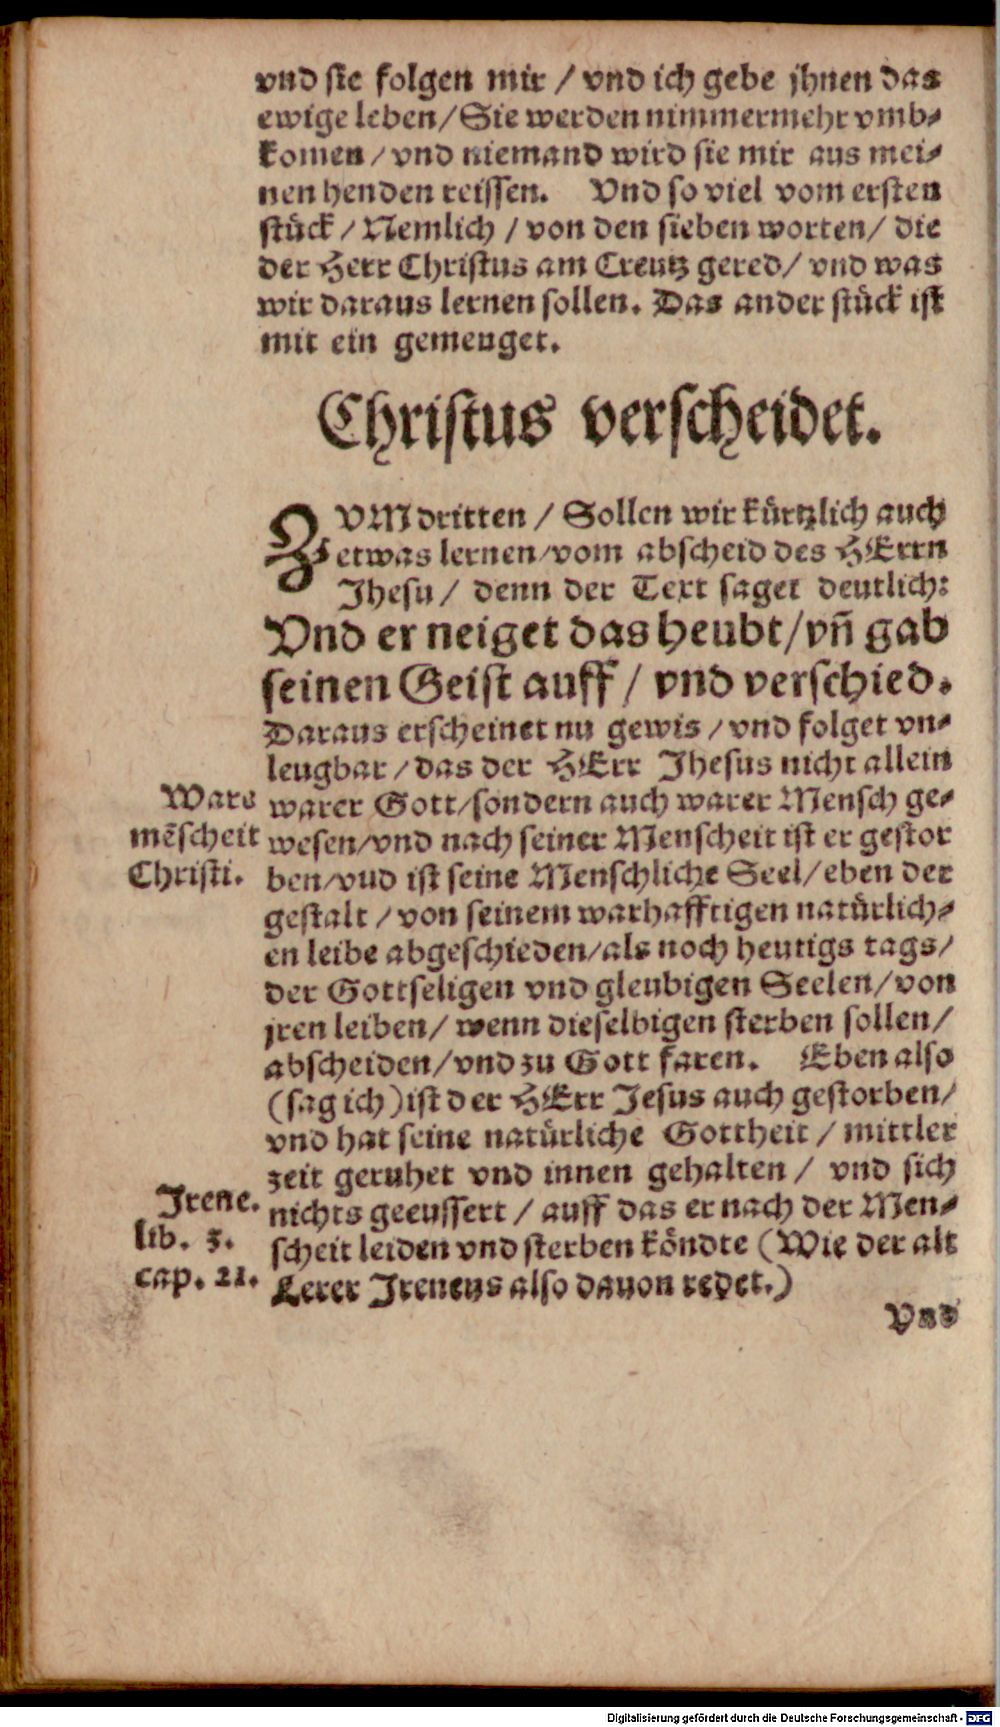 vnd sie folgen mir / vnd ich gebe jhnen das
ewige leben/Sie werden nimmermehr vmb⸗
komen/vnd niemand wird sie mir aus mei⸗
nen henden reissen. Vnd so viel vom ersten
stück / Nemlich / von den sieben worten/ die
der Herr Christus am Creutz gered/ vnd was
wir daraus lernen sollen. Das ander stück ist
mit ein gemenget.
Christus verscheidet.
ZVM dritten / Sollen wir kürtzlich auch
etwas lernen/vom abscheid des HErrn
Jhesu / denn der Text saget deutlich:
Vnd er neiget das heubt/vñ gab
seinen Geist auff / vnd verschied.
Daraus erscheinet nu gewis / vnd folget vn⸗
leugbar / das der HErr Jhesus nicht allein
warer Gott/sondern auch warer Mensch ge⸗
wesen/vnd nach seiner Menscheit ist er gestor
ben/vnd ist seine Menschliche Seel/eben der
gestalt / von seinem warhafftigen natürlich⸗
en leibe abgeschieden/als noch heutigs tags/
der Gottseligen vnd gleubigen Seelen/von
jren leiben/ wenn dieselbigen sterben sollen/
abscheiden/vnd zu Gott faren. Eben also
(sag ich) ist der HErr Jesus auch gestorben/
vnd hat seine natürliche Gottheit / mittler
zeit geruhet vnd innen gehalten / vnd sich
nichts geeussert / auff das er nach der Men⸗
scheit leiden vnd sterben köndte (Wie der alt
Lerer Jreneus also dauon redet.)
Vnd
Ware
mẽscheit
Christi.
Jrene.
lib. 3.
cap. 21.
Digitalisierung gefördert durch die Deutsche Forschungsgemeinschaft - DFG